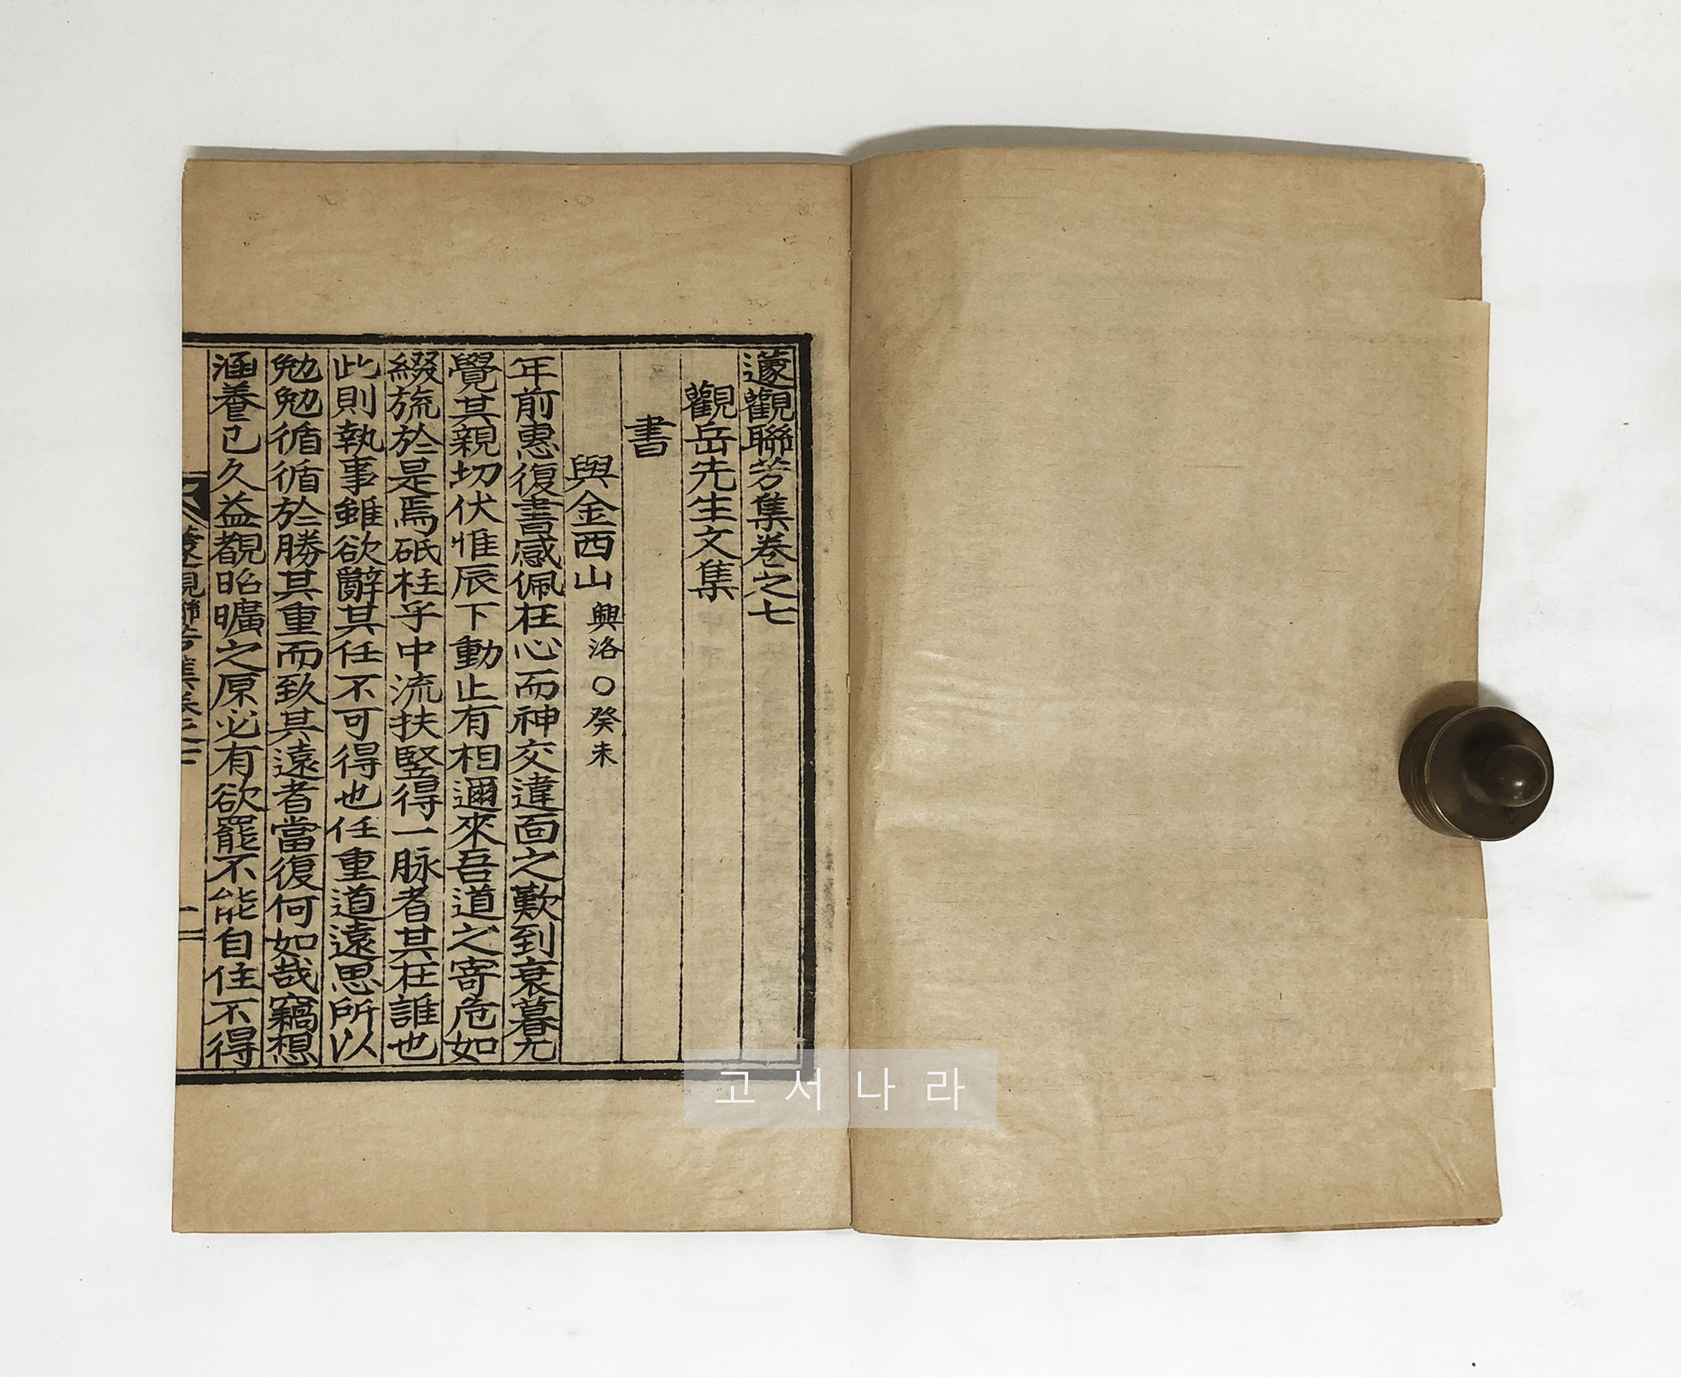 蘧觀聯芳集卷之七
觀岳先生文集
書
與金西山興洛○癸未
年前惠復書感佩在心而神交違面之歎到衰暮尤
覺其親切伏惟辰下動止有相邇來吾道之寄危如
綴旒於是焉砥柱乎中流扶竪得一脉者其在誰也
此則執事雖欲辭其任不可得也任重道遠思所以
勉勉循循於勝其重而致其遠者當復何如哉竊想
涵養已久益覩昭曠之原必有欲罷不能自住不得
蘧觀聯芳集卷之七
一
고서나라